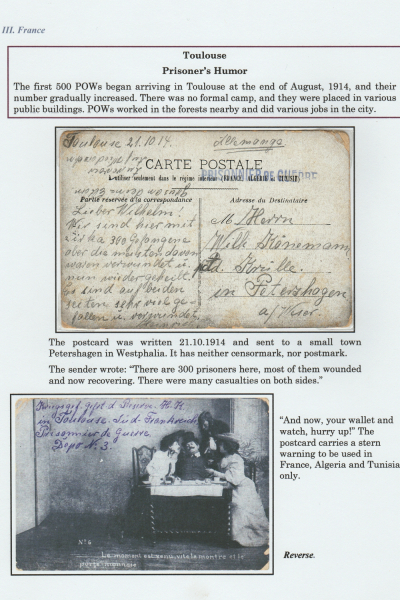 III. France
Toulouse
Prisoner's Humor
The first 500 POWs began arriving in Toulouse at the end of August, 1914, and their
number gradually increased. There was no formal camp, and they were placed in various
public buildings. POWs worked in the forests nearby and did various jobs in the city.
Toulouse 21.10.14.
Allemagne
CARTE POSTALE
PRISONNIER DE GUERRE
A utiliser seulement dans le régime intérieur (FRANCE, ALGERIE et TUNISIE)
Partie réservée à la correspondance
Adresse du Destinataire
Lieber Wilhelm!
Wir sind hier mit
300 Gefangene
aber die
verwundet u.
nun wieder
Es sind auf beiden
Seiten sehr viel ge-
fallen u. verwundet.
Herrn
Wilh.
in Petershagen
a/Weser.
The postcard was written 21.10.1914 and sent to a small town
Petershagen in Westphalia. It has neither censormark, nor postmark.
The sender wrote: "There are 300 prisoners here, most of them wounded
and now recovering. There were many casualties on both sides."
in Toulouse. Süd-Frankreich
Prisonnier de Guerre
Depo N. 3.
No 6
Le moment est venu, vite la montre et le
porte monnaie
"And now, your wallet and
watch, hurry up!" The
postcard carries a stern
warning to be used in
France, Algeria and Tunisia
only.
Reverse.